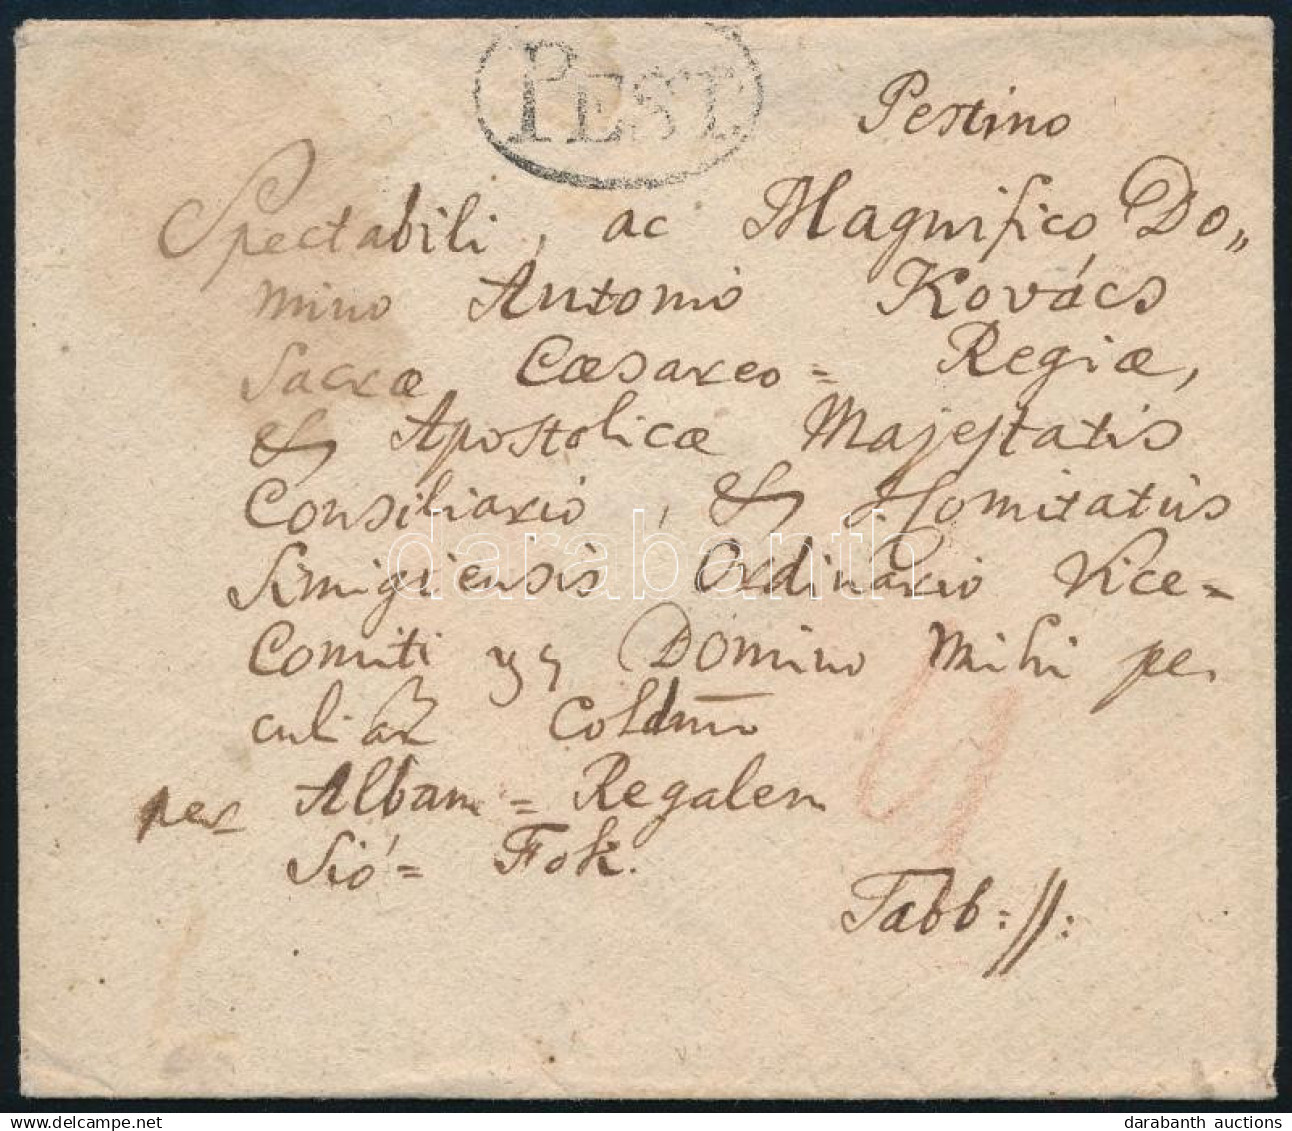 PEST
Pestino
Spectabili, ac Magnifico Do„
mino Antonio Kovács
Sacræ Cæsareo = Regiæ,
& Apostolicæ Majestatis
Consiliario, & Comitatûs
Simigiensis Ordinario Vice=
Comiti Domino Mihi pe
culiar Coldmo
per Albam = Regalem
Sió = Fok.
Tabb: //:
darabanth
darabanth auctions